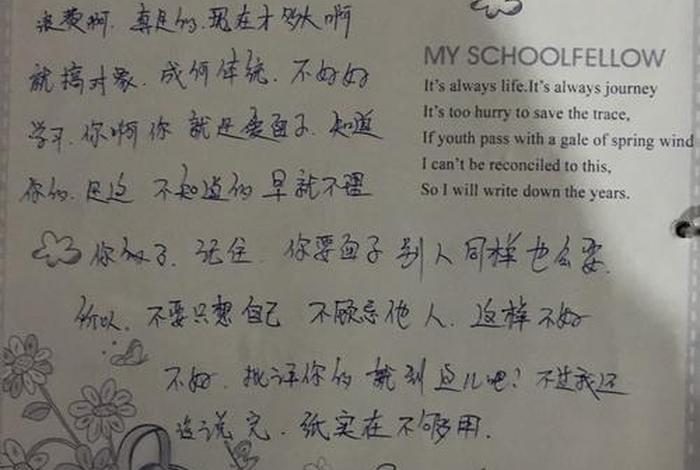 浪费啊. 真是的. 现在才多大啊
就搞对象. 成何体统. 不好好
学习. 你啊你 就是爱面子. 知道
你的. 是这 不知道的 早就不理
你了. 记住. 你要面子 别人同样也会要.
所以. 不要只想自己 不顾忌他人. 这样不好
不好. 批评你的 就到这儿吧! 不过我还
没说完. 纸实在不够用.
MY SCHOOLFELLOW
It's always life.It's always journey
It's too hurry to save the trace,
If youth pass with a gale of spring wind
I can't be reconciled to this,
So I will write down the years.